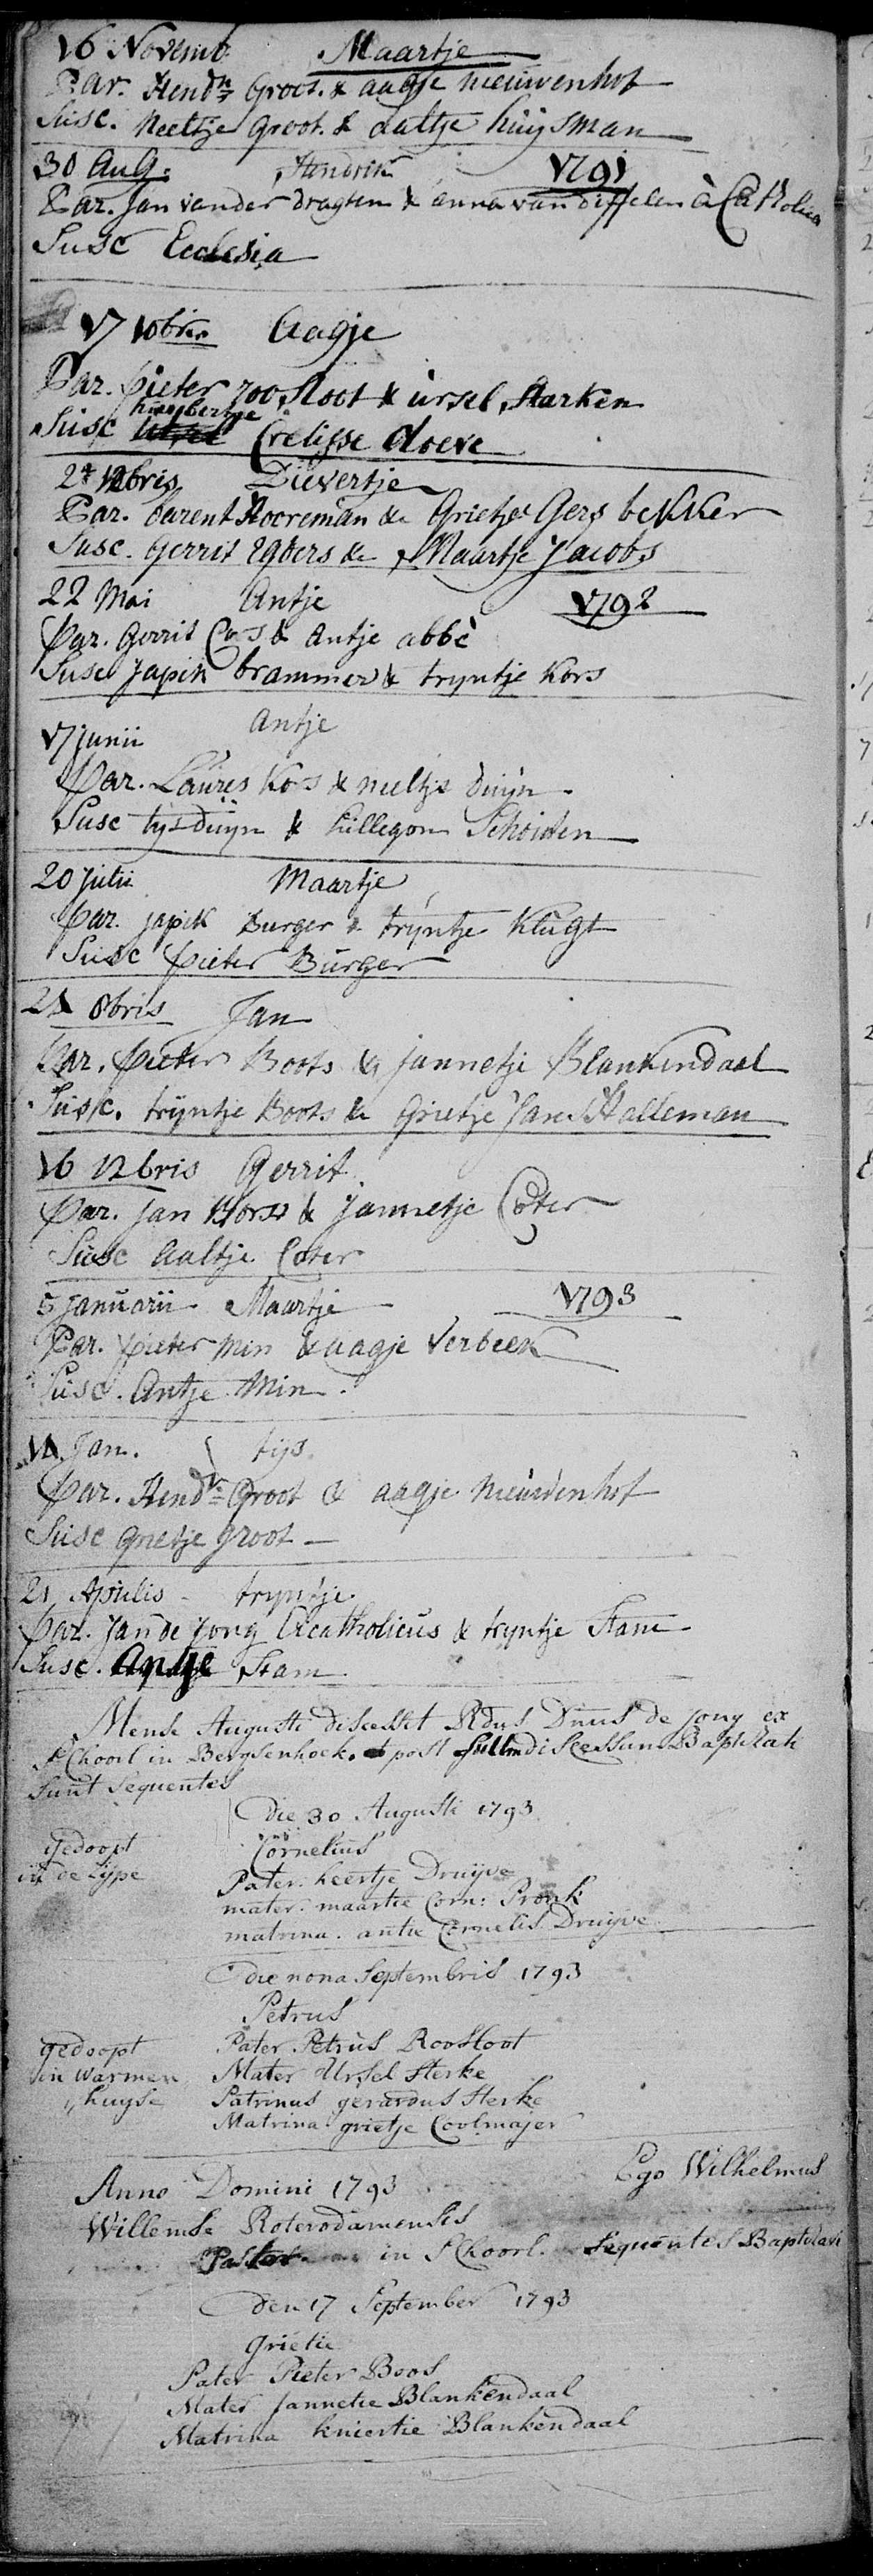 16 Novemb. Maartje
Par. Hendr. Groot. & aagje nieuwenhof
Susc. Neeltje Groot. & aaltje huijsman
30 Aug. Hendrik 1791
Par. Jan van der dragten & anna van deffelen aCatholica
Susc Ecclesia
17 10bris Aagje
Par. pieter roosloot & ursel Starken
huijbertje
Susc Crelisse doeve
2 12bris Dievertje
Par. barent Hocreman & Grietje Gers bekker
Susc. Gerrit Egbers & Maartje Jacobs
22 Mai Antje 1792
Par. Gerrit & Antje abbé
Susc Japik brammer & tryntje Kors
17 junii Antje
Par. Laures Kos & neeltje duijn
Susc tijs duijn & hillegon Schoiden
20 julii Maartje
Par. japik Burger & tryntje Klugt
Susc pieter Burger
21 8bris Jan
Par. pieter Boots & jannetje Blankendaal
Susc. tryntje Boots & Grietje Jans Halleman
16 12bris Gerrit
Par. Jan Korss & Jannetje Coter
Susc Aaltje Coter
5 Januarii Maartje 1793
Par. pieter Min & aagje Verbeek
Susc. Antje Min.
14 Jan. tijs
Par. Hendr. Groot & aagje nieuwenhof
Susc grietje groot
21 Aprilis tryntje
Par. Jan de Jong Acatholicus & tryntje Stam
Susc. Antje Stam
Mense Augusti discessit Rdus Dnus de jong ex
Schoorl in Bergsenhoek. et post discessum Baptizati
sunt sequentes
die 30 Augusti 1793
gedoopt Cornelius
in de Zijpe Pater. heertje Druijve
mater. maartie Corn: Pronk
matrina. antie Cornelis Druijve
die nona Septembris 1793
Petrus
gedoopt Pater Petrus Roosloot
in warmen Mater Ursel Sterke
huyse Patrinus gerardus Sterke
Matrina grietje Coolmajer
Anno Domini 1793 Ego Wilhelmus
Willemse Roterodamensis
Pastor in Schoorl. Sequentes Baptizavi
den 17 September 1793
grietie
Pater Pieter Boos
Mater Jannetie Blankendaal
Matrina kniertie Blankendaal